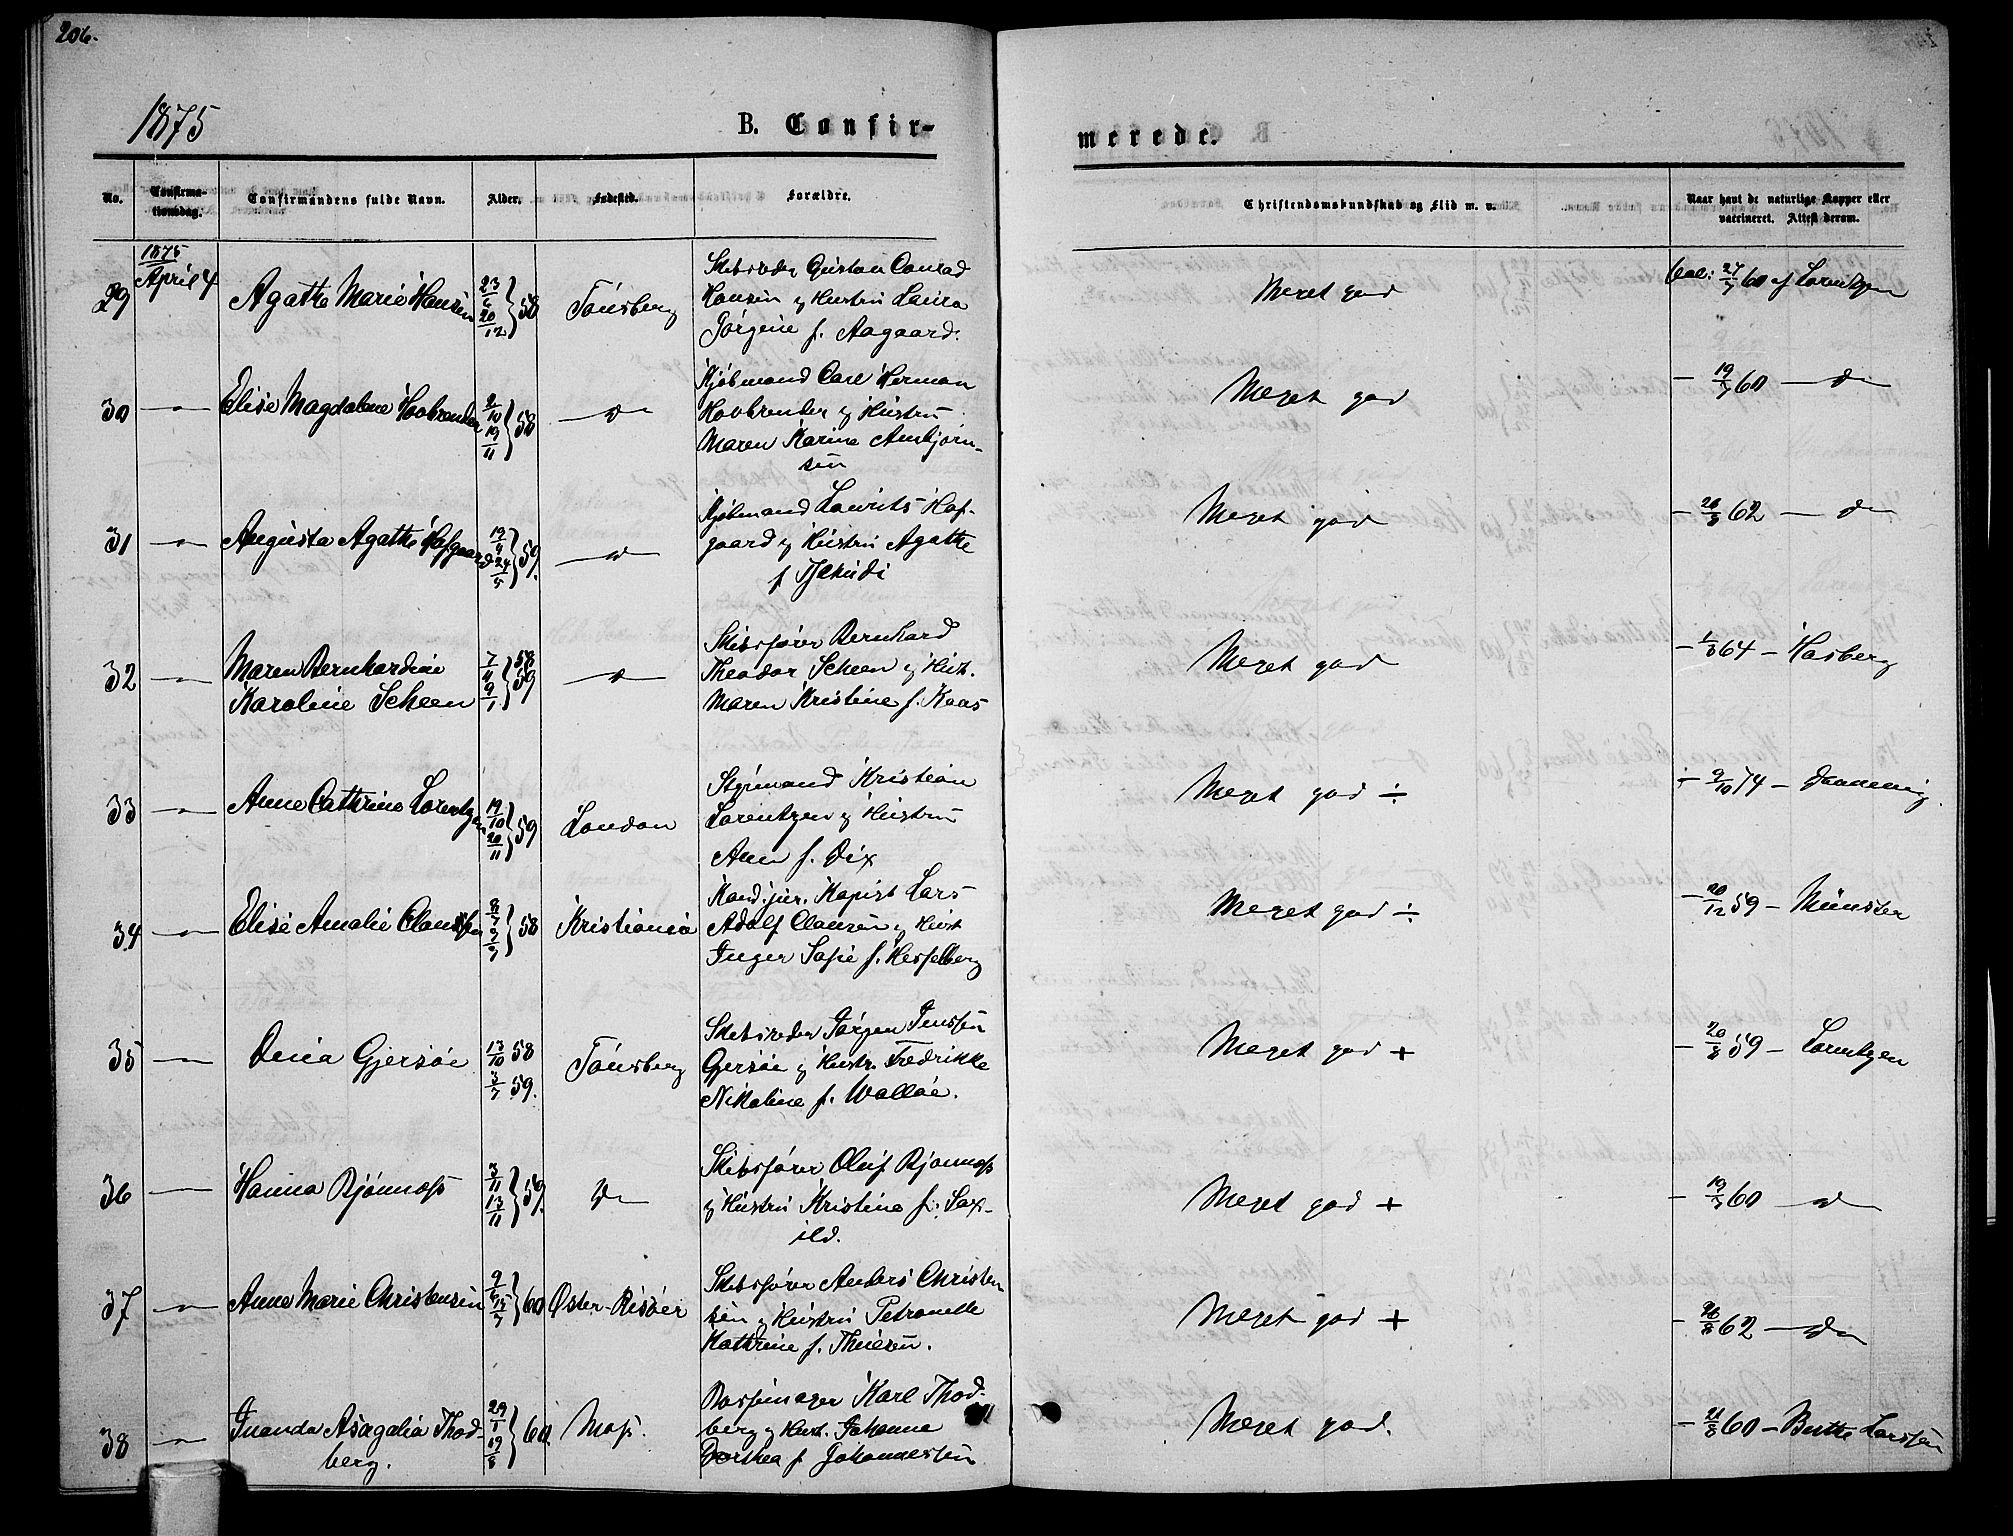 206.
1875
B. Confir-
merede.
No.
Confirma-
tionsdag.
Confirmandens fulde Navn.
Alder.
Fødested.
Forældre.
Christendomskundskab og Flid m. v.
Naar havt de naturlige Kopper eller
vaccineret. Attest derom.
1875
29 April 4 Agathe Marie Hansen 23/6 20/12 } 58 Tönsberg
Skibsreder Gustav Conrad
Hansen og Hustru Laura
Jørgine f. Aagaard.
Meget god
27/7 60 af Lorentzen
30 — Elise Magdalene Hovbrender 2/10 19/11 } 58 —
Kjöbmand Carl Herman
Hovbrender og Hustru
Maren Karine Arnbjørn-
sen
Meget god
— 19/7 60 —
31 — Augusta Agathe Hafgaard 19/4 24/5 } 59. —
Kjöbmand Lawrits Haf-
gaard og Hustru Agathe
f.
Meget god
— 62 —
32 — Maren Bernhardine
Karoline Scheen 9/1 } 58 59 —
Skibsfører Bernhard
Theodor Scheen og Hust.
Maren Kristine f. Kaas
Meget god
— 64 — Hasberg
33 — Anne Cathrine Lorentzen 19/10 20/11 } 59 London
Styrmand Kristian
Lorentzen og Hustru
Ann f. Dix
Meget god ÷
÷ 9/10 74 —
34 — Elise Amalie Claussen 58
Kand. jur. Kopist Lars
Adolf Clausen og Hust
Inger Sofie f. Hesselberg
Meget god ÷
— 20/12 59 — Münster
35 — Dena Gjersöe 13/10 58
3/7 59. Tönsberg
Skibsreder Jörgen Jenssen
Gjersöe og Hustr. Fredrikke
Nikoline f. Wallöe.
Meget god +
— 20/8 59 — Lorentzen
36 — Hanna Bjönness 3/11 13/11 } 59.
Skibsfører Oluf Bjønness
og Hustru Kristine f. Sax-
ild.
Meget god +
— 19/7 60 —
37 — Anne Marie Christensen 60 Øster-Risöer
Skibsfører Anders Christen
sen og Hustru Petronelle
Kathrine f.
Meget god +
— 26/8 62 —
38 — Asagalia Thod-
berg. 29/1 19/8 } 60. Moss.
Karl Thod-
berg og Hust. Johanne
Dorthea f. Johannessen
Meget god.
— 21/8 60 — Berthe Larssen